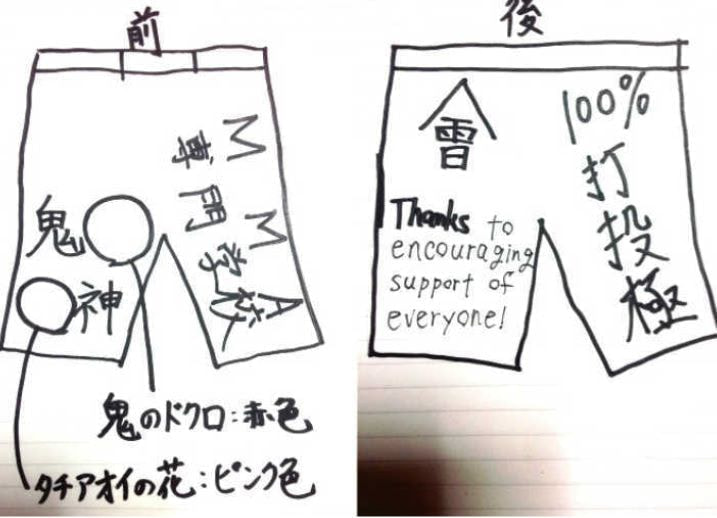 前
鬼
神
MMA
専門学校
鬼のドクロ:赤色
タチアオイの花:ピンク色
後
100%
打投極
Thanks to
encouraging
support of
everyone!